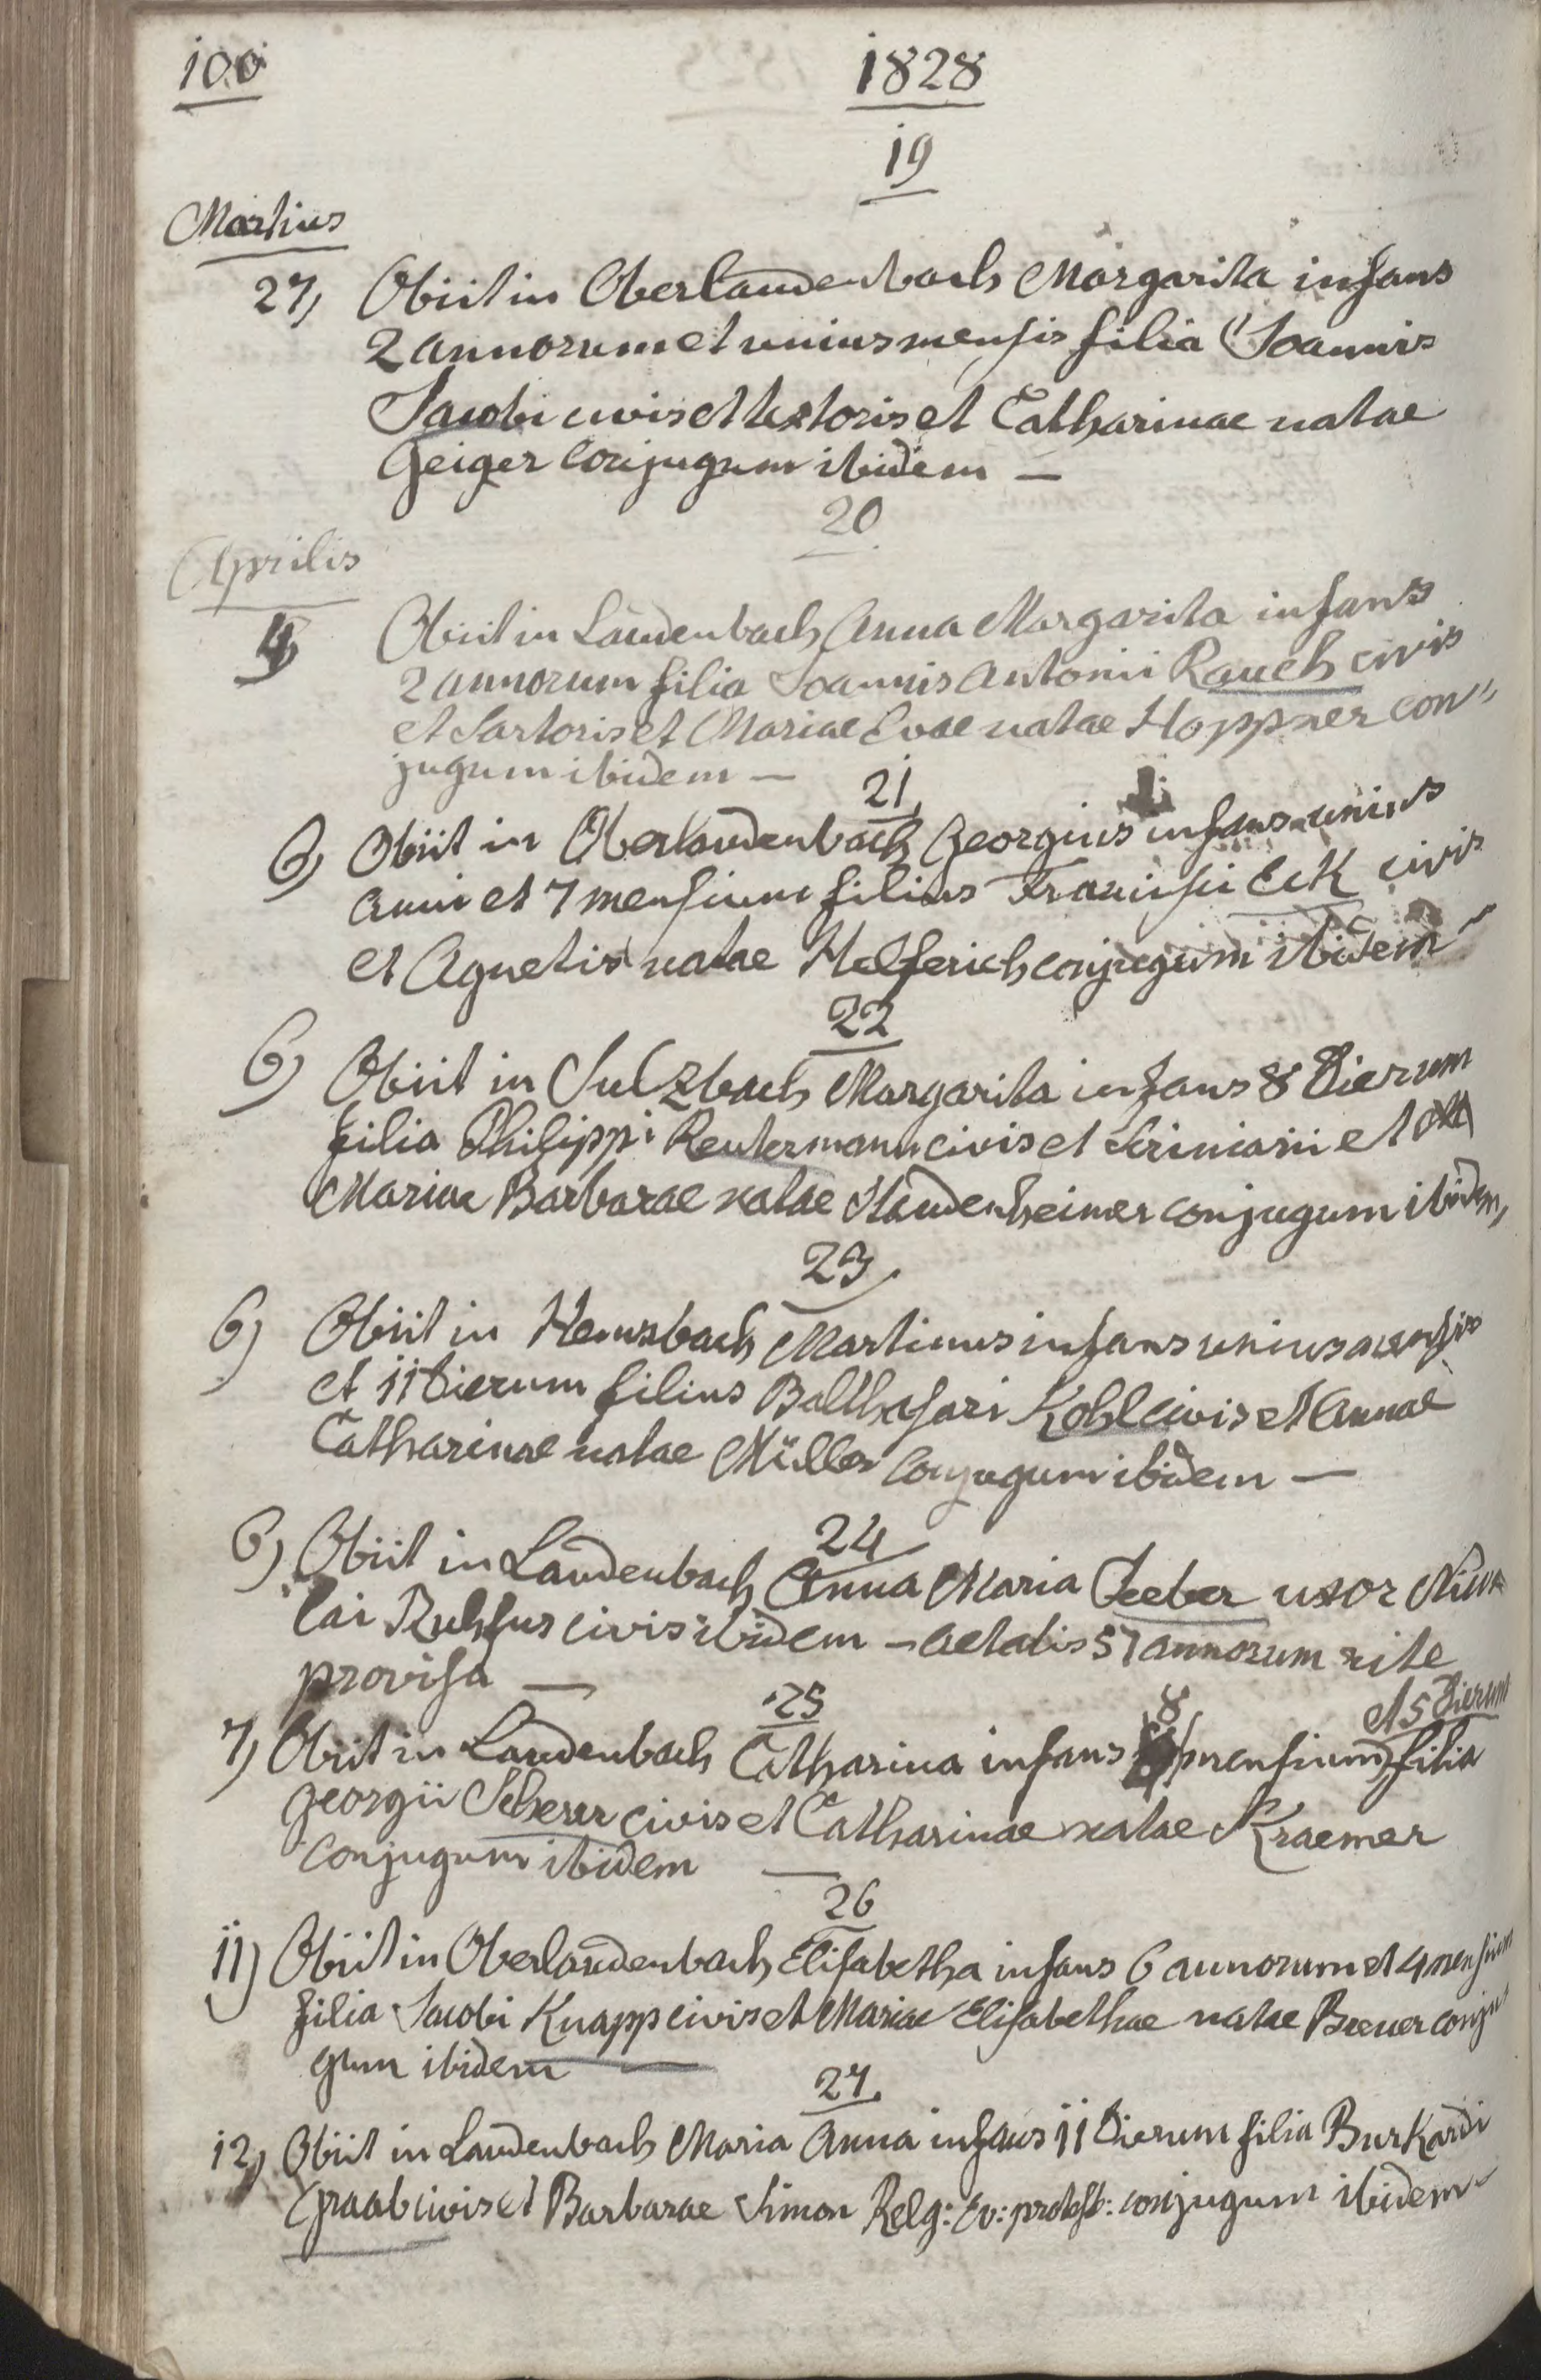 100
1828
19
Martius
27) Obiit in Oberlaudenbach Margarita infans
2 annorum et unius mensis filia Joannis
Jacobi civis et textoris et Catharinae natae
Geiger conjugum ibidem —
20
Aprilis
4) Obiit in Laudenbach Anna Margarita infans
2 annorum filia Joannis Antonii Rauch civis
et Sartoris et Mariae Evae natae Hoppner con"
jugum ibidem —
21
6) Obiit in Oberlaudenbach Georgius infans unius
anni et 7 mensium filius Francisci Eck civis
et Agnetis natae Helferich conjugum ibidem
22
6) Obiit in Sulzbach Margarita infans 8 dierum
filia Philippi Reutermann civis et Scriniarii et
Mariae Barbarae natae Haudenheimer conjugum ibidem,
23
6) Obiit in Hemsbach Martinus infans unius mensis
et 11 dierum filius Balthasari Kohl civis et Annae
Catharinae natae Müller conjugum ibidem —
24
6) Obiit in Laudenbach Anna Maria Seeber uxor Nico
lai Ruhfus civis ibidem — aetatis 57 annorum rite
provisa —
25
7) Obiit in Laudenbach Catharina infans 8 mensium et 5 dierum filia
Georgii Scherer civis et Catharinae natae Kraemer
conjugum ibidem —
26
11) Obiit in Oberlaudenbach Elisabetha infans 6 annorum et 4 mensium
filia Jacobi Knapp civis et Mariae Elisabethae natae Breuer conju
gum ibidem —
27
12) Obiit in Laudenbach Maria Anna infans 11 dierum filia Burkardi
Graab civis et Barbarae Simon Relg: Ev: protest: conjugum ibidem